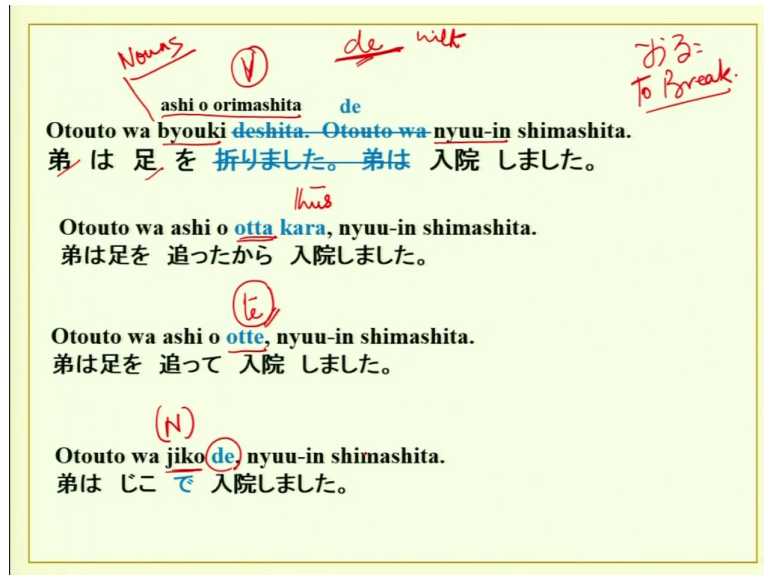 Nouns
V
de with
おる =
To Break.
ashi o orimashita de
Otouto wa byouki deshita. Otouto wa nyuu-in shimashita.
弟 は 足 を 折りました。 弟は 入院 しました。
thus
Otouto wa ashi o otta kara, nyuu-in shimashita.
弟は足を 追ったから 入院しました。
te
Otouto wa ashi o otte, nyuu-in shimashita.
弟は足を 追って 入院 しました。
(N)
Otouto wa jiko de, nyuu-in shimashita.
弟は じこ で 入院しました。